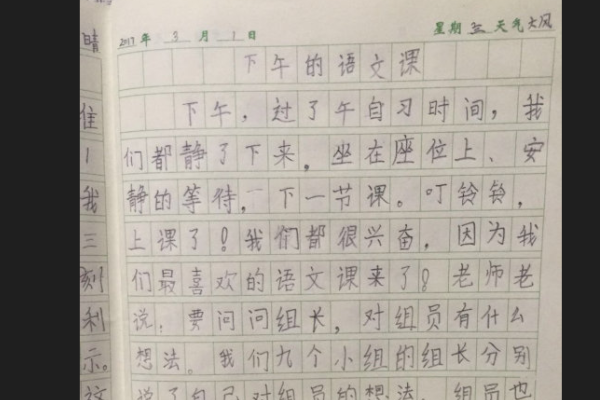 2017年 3月 1日 星期三 天气大风
下午的语文课
下午，过了午自习时间，我
们都静了下来。坐在座位上、安
静的等待，下一节课。叮铃铃，
上课了！我们都很兴奋，因为我
们最喜欢的语文课来了！老师老
说：要问问组长，对组员有什么
想法。我们九个小组的组长分别
说了自己对组员的想法。组员也
晴
1
我
三
刻
利
示。